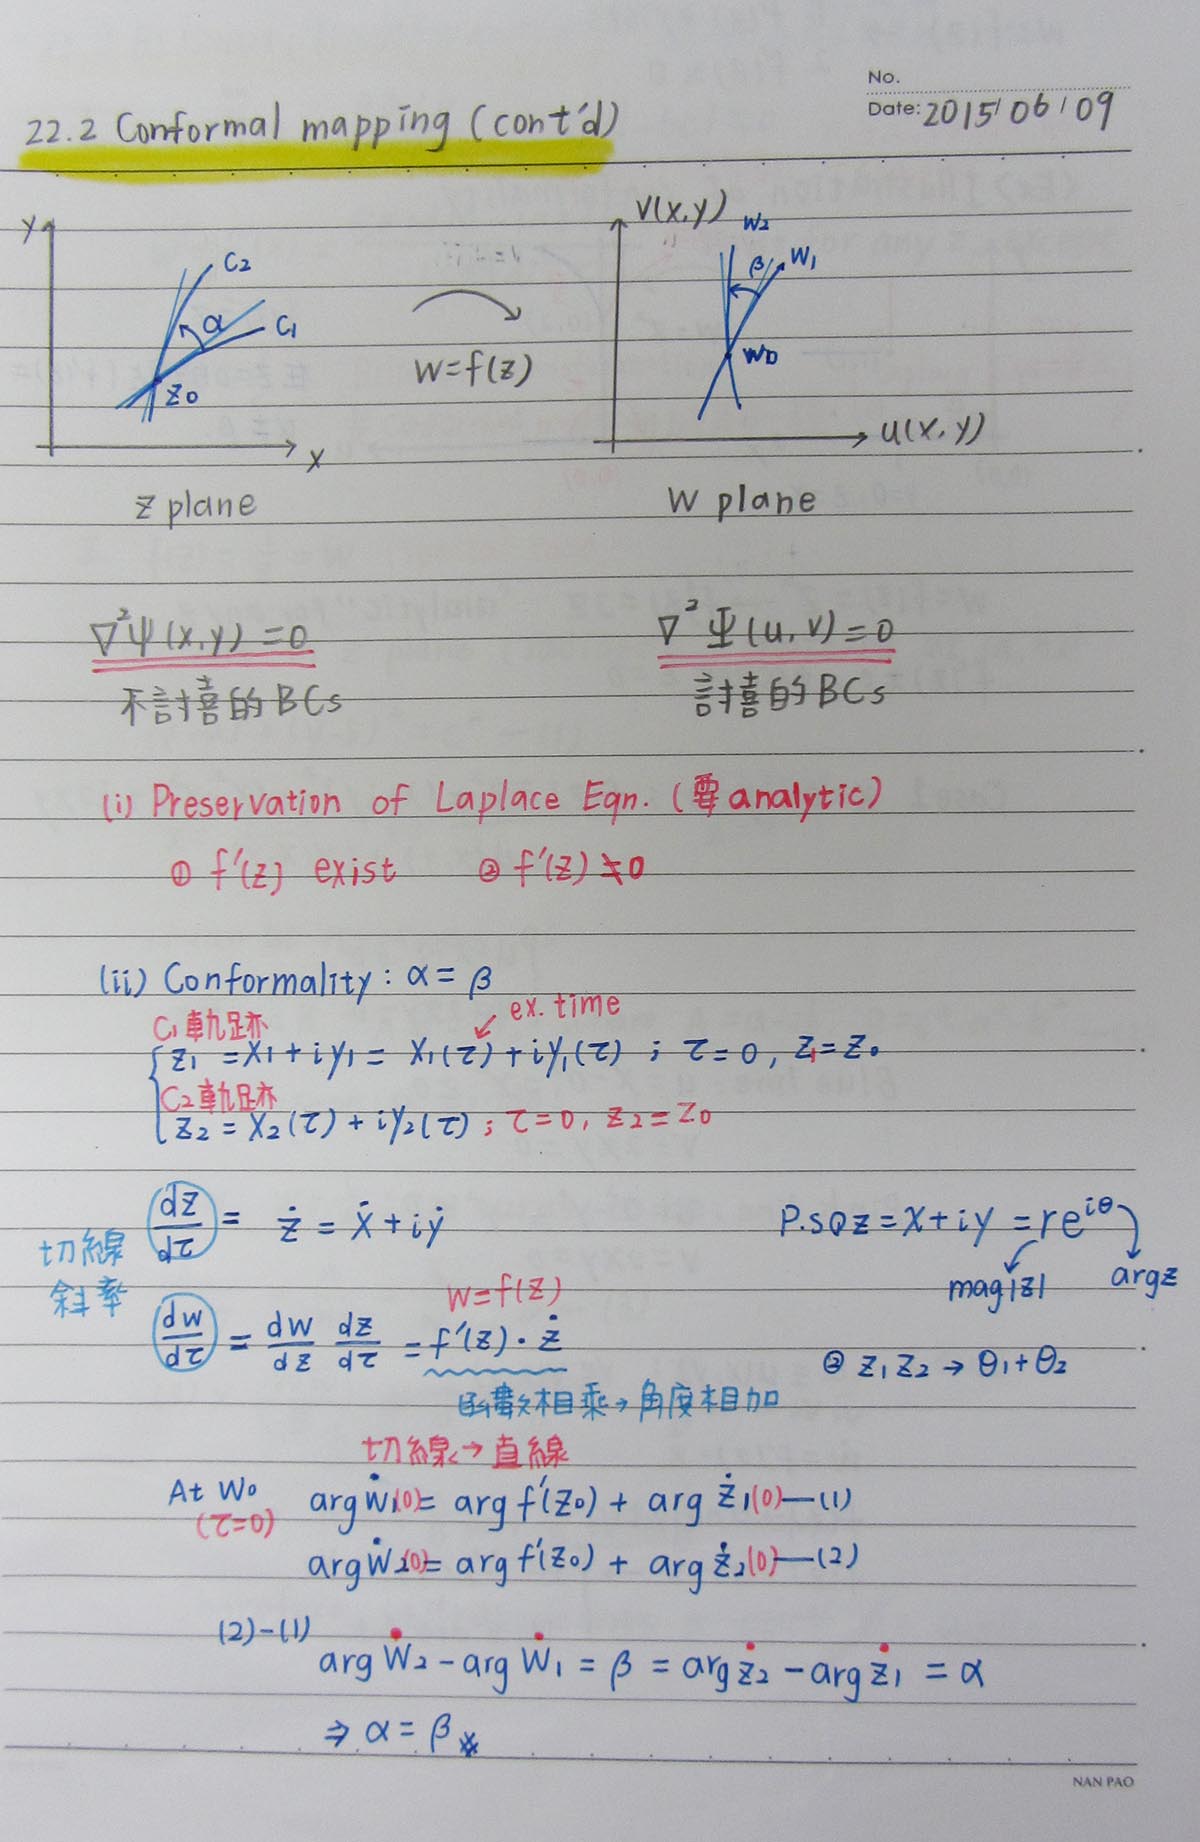 No.
Date: 2015/06/09
22.2 Conformal mapping (cont'd)
y
C2
α
C1
Z0
x
z plane
W=f(z)
V(x,y)
W2
β
W1
W0
u(x,y)
W plane
∇²ψ(x,y)=0
不討喜的BCs
∇²Ψ(u,v)=0
討喜的BCs
(i) Preservation of Laplace Eqn. (要analytic)
① f'(z) exist ② f'(z)≠0
(ii) Conformality: α=β
ex. time
C1軌跡
z1 = x1+iy1 = x1(τ)+iy1(τ) ; τ=0, z1=z0
C2軌跡
z2 = x2(τ)+iy2(τ) ; τ=0, z2=z0
切線斜率
dz/dτ = ż = ẋ+iẏ
P.S① z=x+iy=re^{iθ}
mag|z| argz
W=f(z)
dw/dτ = dw/dz dz/dτ = f'(z)·ż
② z1z2→θ1+θ2
函數相乘→角度相加
切線→直線
At W0 arg ẇ1(0)= arg f'(z0) + arg ż1(0)—(1)
(τ=0)
arg ẇ2(0)= arg f'(z0) + arg ż2(0)—(2)
(2)-(1)
arg ẇ2 - arg ẇ1 = β = arg ż2 - arg ż1 = α
⇒ α=β※
NAN PAO